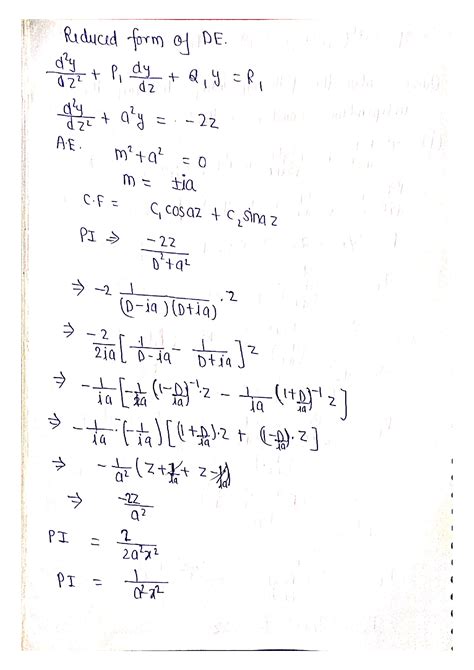 Reduced form of DE.
d²y/dz² + P₁ dy/dz + Q₁y = R₁
d²y/dz² + a²y = -2z
A.E. m² + a² = 0
m = ±ia
C.F = C₁cosaz + C₂sinaz
PI ⇒ -2z/(D²+a²)
⇒ -2 1/((D-ia)(D+ia)) · z
⇒ -2/2ia [1/(D-ia) - 1/(D+ia)] z
⇒ -1/ia [-1/ia (1-D/ia)⁻¹ · z - 1/ia (1+D/ia)⁻¹ z]
⇒ -1/ia · (-1/ia) [(1+D/ia) · z + (1-D/ia) · z]
⇒ -1/a² (z + 1/ia + z - 1/ia)
⇒ -2z/a²
PI = 2/2a²x²
PI = 1/a²x²